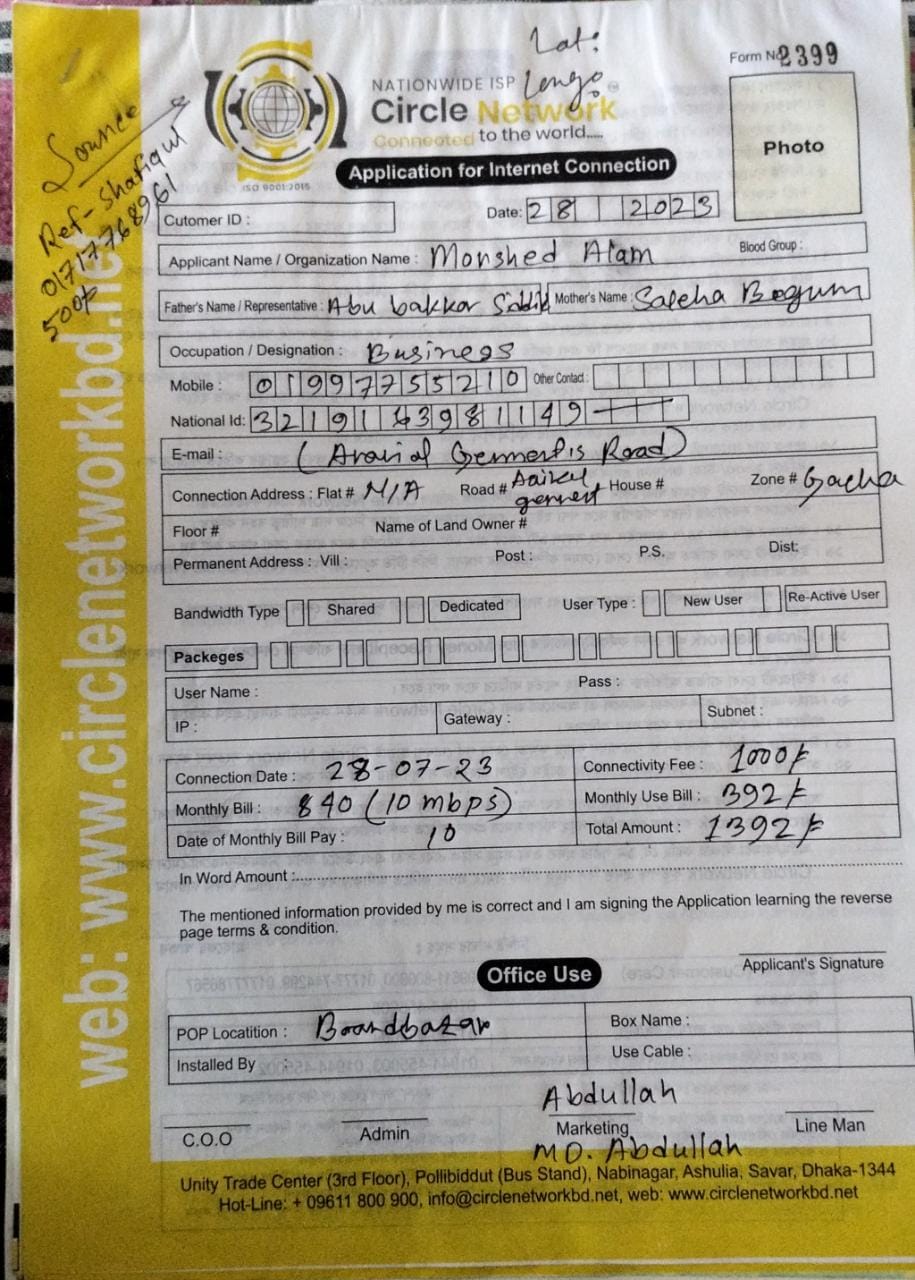 Lat:
Longo
Form No 2399
NATIONWIDE ISP
Circle Network
Connected to the world.....
ISO 9001:2015
Application for Internet Connection
Photo
Source
Ref- Shafiqul
01717768961
500/-
web: www.circlenetworkbd.net
Cutomer ID :
Date: 28 2023
Applicant Name / Organization Name : Morshed Alam Blood Group :
Father's Name / Representative : Abu bakkar Siddik Mother's Name : Saleha Begum
Occupation / Designation : Business
Mobile : 01997755210 Other Contact :
National Id:
E-mail :
Road)
Connection Address : Flat # N/A Road # House # Zone # Gacha
Floor # Name of Land Owner #
Permanent Address : Vill : Post : P.S. Dist:
Bandwidth Type Shared Dedicated User Type : New User Re-Active User
Packeges
User Name : Pass :
IP : Gateway : Subnet :
Connection Date : 28-07-23 Connectivity Fee : 1000/-
Monthly Bill : 840 (10 mbps) Monthly Use Bill : 392/-
Date of Monthly Bill Pay : 10 Total Amount : 1392/-
In Word Amount :
The mentioned information provided by me is correct and I am signing the Application learning the reverse
page terms & condition.
Applicant's Signature
Office Use
POP Locatition : Boardbazar Box Name :
Installed By : Use Cable :
Abdullah
C.O.O Admin Marketing Line Man
MD. Abdullah
Unity Trade Center (3rd Floor), Pollibiddut (Bus Stand), Nabinagar, Ashulia, Savar, Dhaka-1344
Hot-Line: + 09611 800 900, info@circlenetworkbd.net, web: www.circlenetworkbd.net